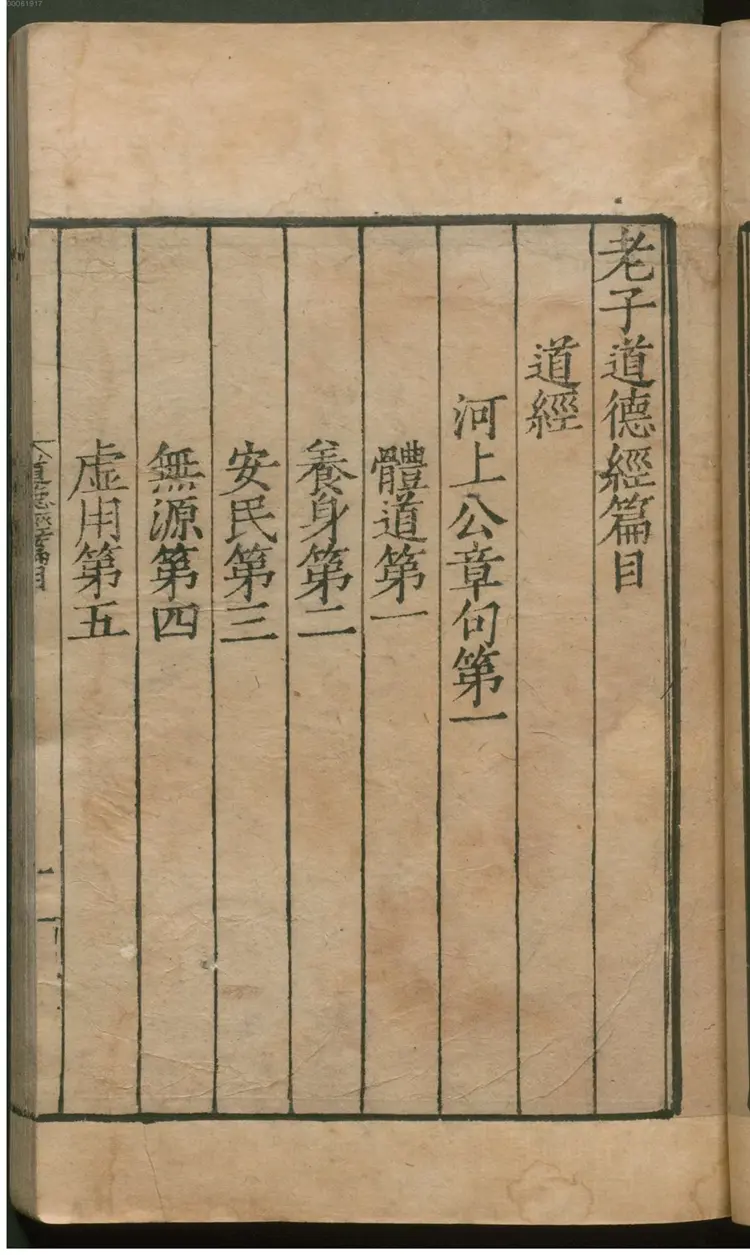 00081917
老子道德經篇目
道經
河上公章句第一
體道第一
養身第二
安民第三
無源第四
虛用第五